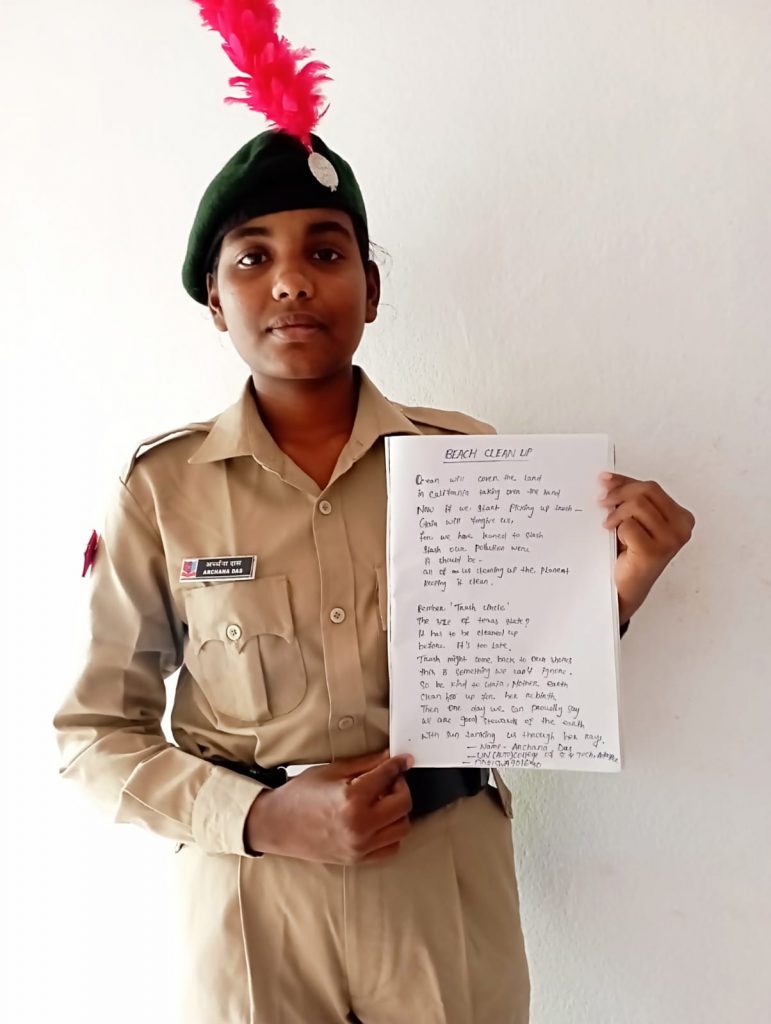 अर्चना दास
ARCHANA DAS
BEACH CLEAN UP
Ocean will cover the land
in California taking over the land
Now if we start picking up trash -
Gaia will forgive us,
for we have learned to stash
stash our pollution were
it should be -
all of us cleaning up the planent
keeping it clean.
Rember 'Trash circle'
The size of texas state?
It has to be cleaned up
before it's too late.
Trash might come back to our shores
this is something we can't ignore.
So be kind to Gaia, Mother earth
Clean her up for her rebirth
Then one day we can proudly say
we are good stewards of the earth
with sun tanking us through her ray.
- Name - Archana Das
- UN (AUTO) College of Sc & Tech,